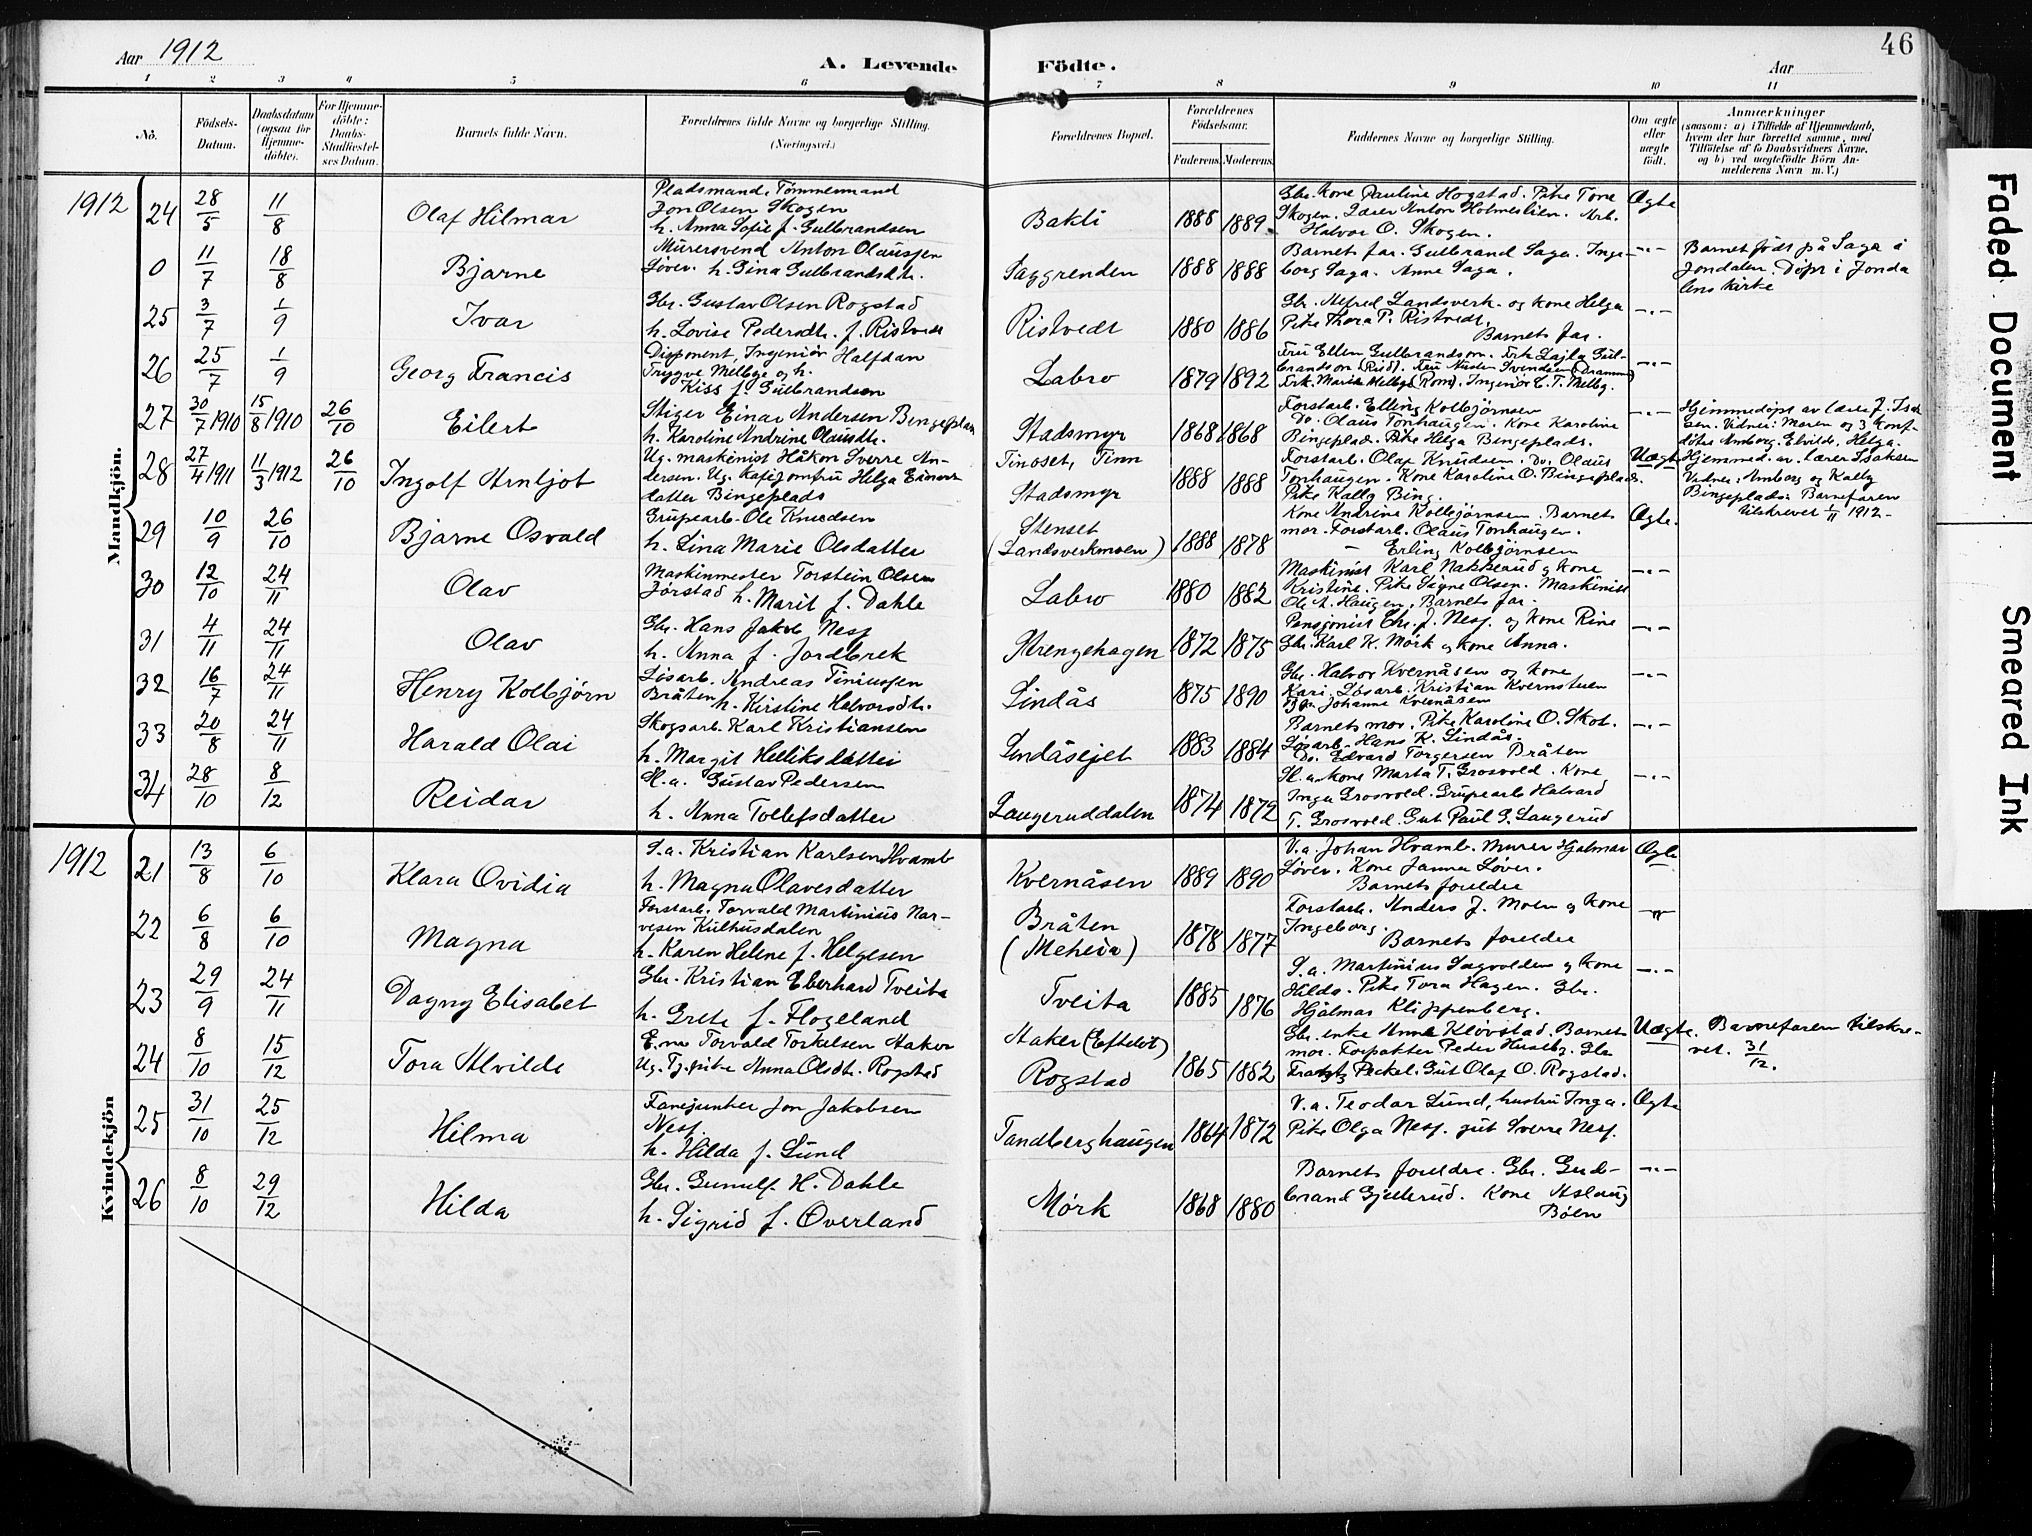 Aar 1912
A. Levende Födte.
Aar
46
1 2 3 4 5 6 7 8 9 10 11
No.
Födsels-
Datum.
Daabsdatum
(ogsaa for
Hjemme-
döbte).
For Hjemme-
döbte:
Daabs-
Stadfæstel-
ses Datum.
Barnets fulde Navn.
Forældrenes fulde Navne og borgerlige Stilling.
(Næringsvei.)
Forældrenes Bopæl.
Forældrenes
Födselsaar.
Faderens. Moderens.
Faddernes Navne og borgerlige Stilling.
Om ægte
eller
uægte
födt.
Anmærkninger
(saasom: a) i Tilfælde af Hjemmedaab,
hvem der har forrettet samme, med
Tilföielse af to Daabsvidners Navne.
og b) ved uægtefödte Börn An-
melderens Navn m. V.)
Mandkjön.
1912 24 28/5 11/8 Olaf Hilmar
Pladsmand, Tømmermand
Jon Olsen Skogen
h. Anna Sofie f. Gulbrandsen
Bakli 1888 1889
Gbr. kone Pauline Hogstad. Pike Tone
Skogen. Lærer Anton Holmeslien. Arb.
Halvor O. Skogen.
Ægte
0 11/7 18/8 Bjarne
Murersvend Anton Olaussen
Løver. h. Gina Gulbrandsdtr.
Saggrenden 1888 1888
Barnets far. Gulbrand Saga. Inge-
borg Saga. Anne Saga.
-"-
Barnet födt på Saga i
Jondalen. Döpt i Jonda
lens kirke
25 3/7 1/9 Ivar
Gbr. Gustav Olsen Rogstad
h. Lovise Pedersdtr. f. Ristvedt
Ristvedt 1880 1886
Gbr. Alfred Landsverk og kone Helga
Pike Thora P. Ristvedt.
Barnets far.
-"-
26 25/7 1/9 Georg Francis
Disponent, Ingeniör Halfdan
Trygve Melbye og h.
Kiss f. Gulbrandson
Labro 1879 1892
Fru Ellen Gulbrandson. Frk Lajla Gul-
brandson (Risö). Fru Svendsen (Drammen)
Frk. Marie Melbye (Rom). Ingeniör C. T. Melby.
-"-
27 30/7 1910 15/8 1910 26/10 Eilert
Stiger Einar Andersen Bingeplas
h. Karoline Andrine Olausdtr.
Stadsmyr 1868 1868
Forstarb. Elling Kolbjörnsen
Do. Olaus Tonhaugen. Kone Karoline
Bingeplads. Pike Helga Bingeplads.
-"-
Hjemmedöpt av lærer J. Isak
sen. Vidner: Maren og 3 konf-
döttre Amborg, Elvilde, Helga.
28 27/4 1911 11/3 1912 26/10 Ingolf Arnljot
Ug. maskinist Håkon Sverre An-
dersen. Ug. kafejomfru Helga Einars
datter Bingeplads
Tinoset, Tinn
Stadsmyr 1888 1888
Forstarb. Olaf Knudsen. Do. Olaus
Tonhaugen. Kone Karoline O. Bingeplads.
Pike Kally Bing.
Uægte
Hjemmed. av lærer Isaksen
Vidner: Amborg og Kally
Bingeplads: Barnefaren
tilskrevet 1/11 1912-
29 10/9 26/10 Bjarne Osvald
Grupearb. Ole Knudsen
h. Lina Marie Olsdatter
Stenset
(Landsverkmoen) 1888 1878
Kone Andrine Kolbjørnsen. Barnets
mor. Forstarb. Olaus Tonhaugen.
– Erling Kolbjørnsen
Ægte.
30 12/10 24/11 Olav
Maskinmester Torstein Olsen
Jørstad h. Marit f. Dahle
Labro 1880 1882
Maskinist Karl Nakkerud og kone
Kristine. Pike Signe Olsen. Maskinist
Ole A. Haugen. Barnets far.
-"-
31 4/11 24/11 Olav
Gbr. Hans Jakob Nesf
h. Anna f. Jordbrek
Strengehagen 1872 1875
Pensjonist Chr. J. Nesf. og kone Rine
Gbr. Karl K. Mörk og kone Anna.
-"-
32 16/7 24/11 Henry Kolbjörn
Løsarb. Andreas Tiniussen
Bråten h. Kirstine Halvorsdtr.
Lindås 1875 1890
Gbr. Halvor Kvernåsen og kone
Kari. Løsarb. Kristian Kvernstuen
Johanne Kvernåsen
-"-
33 20/8 24/11 Harald Olai
Skogsarb. Karl Kristiansen
h. Margit Helliksdatter
Lindåsejet 1883 1884
Barnets mor. Pike Karoline O. Skot.
Løsarb. Hans K. Lindås.
Do. Edvard Torgersen Bråten
-"-
34 28/10 8/12 Reidar
Sl. a. Gustav Pedersen
h. Anna Tollefsdatter
Laugeruddalen 1874 1872
Sl. a. kone Marta T. Grosvold. Kone
Inga Grosvold. Grupearb Halvard
T. Grosvold. Gut Paul G. Laugerud
-"-
Kvindekjön
1912 21 13/8 6/10 Klara Ovidia
S. a. Kristian Karlsen Hvamb
h. Magna Olavesdatter
Kvernåsen 1889 1890
V. a. Johan Hvamb. Murer Hjalmar
Løver. Kone Janna Løver.
Barnets foreldre
Ægte
22 6/8 6/10 Magna
Forstarb. Torvald Martinius Nar-
vesen Kulhusdalen
h. Karen Helene f. Helgesen
Bråten
(Meheia) 1878 1877
Forstarb. Anders J. Moen og kone
Ingeborg.
Barnets foreldre
-"-
23 29/9 24/11 Dagny Elisabet
Gbr. Kristian Eberhard Tveita
h. Grete f. Flogeland
Tveita 1885 1876
S. a. Martinius Sagvolden og kone
Hilda. Pike Tora Hagen. Gbr.
Hjalmar Klippenberg.
-"-
24 8/10 15/12 Tora Alvilde
E.m. Torvald Torkelsen Haker
Ug. Tj.pike Anna Olsdtr. Rogstad
Haker (Efteløt)
Rogstad 1865 1882
Gbr. enke Anne Kløvstad. Barnets
mor. Forpakter Peder Huseby. Gbr
Peckel. Gut Olaf O. Rogstad.
Uægte.
Barnefaren tilskre-
vet. 31/12.
25 31/10 25/12 Hilma
Fanejunker Jon Jakobsen
Nesf.
h. Hilda f. Lund
Tandberghaugen 1864 1872
V. a. Teodar Lund, hustru Inga.
Pike Olga Nesf. gut Sverre Nesf.
Ægte
26 8/10 29/12 Hilda
Gbr. Gunulf H. Dahle
h. Sigrid f. Overland
Mørk 1868 1880
Barnets foreldre. Gbr. Gud-
brand Gjellerud. Kone Aslaug
Bölen
-"-
Faded Document
Smeared Ink